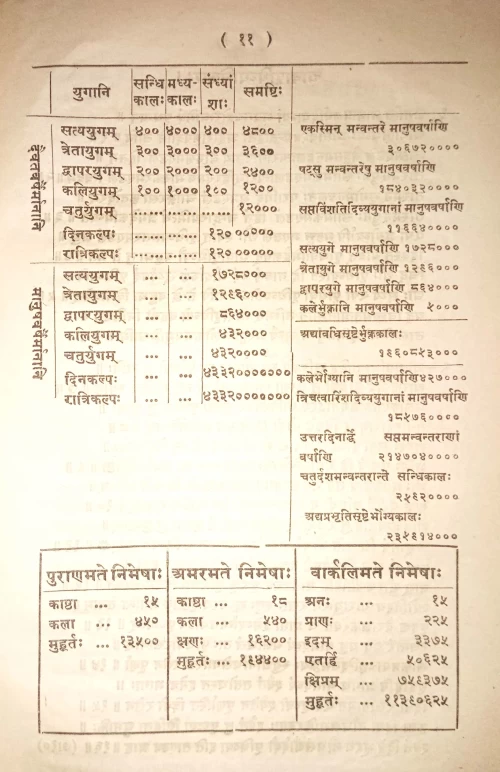 ( ११ )
युगानि सन्धि मध्य- संध्यां समष्टिः
कालः कालः शाः
सत्ययुगम् ४०० ४००० ४०० ४८००
त्रेतायुगम् ३०० ३००० ३०० ३६००
द्वापरयुगम् २०० २००० २०० २४००
कलियुगम् १०० १००० १०० १२००
चतुर्युगम् ...... ...... ...... १२०००
दिनकल्पः ... ... १२००००००
रात्रिकल्पः ... ... १२००००००
सत्ययुगम् ... ... १७२८०००
त्रेतायुगम् ... ... १२९६०००
द्वापरयुगम् ... ... ८६४०००
कलियुगम् ... ... ४३२०००
चतुर्युगम् ... ... ४३२००००
दिनकल्पः ... ... ४३३२०००००००
रात्रिकल्पः ... ... ४३३२०००००००
मानुषवर्षमानानि
एकस्मिन् मन्वन्तरे मानुषवर्षाणि
३०६७२००००
षट्सु मन्वन्तरेषु मानुषवर्षाणि
१८४०३२००००
सप्तविंशतिदिव्ययुगानां मानुषवर्षाणि
११६६४००००
सत्ययुगे मानुषवर्षाणि १७२८०००
त्रेतायुगे मानुषवर्षाणि १२९६०००
द्वापरयुगे मानुषवर्षाणि ८६४०००
कलेर्भुक्तानि मानुषवर्षाणि ५०००
अद्यावधिसृष्टेर्भुक्तकालः
१९६०८५३०००
कलेर्भोग्यानि मानुषवर्षाणि४२७०००
त्रिचत्वारिंशदिव्ययुगानां मानुषवर्षाणि
१८५७६००००
उत्तरदिनार्द्धे सप्तमन्वन्तराणां
वर्षाणि २१४७०४००००
चतुर्दशमन्वन्तरान्ते सन्धिकालः
२५९२००००
अद्यप्रभृतिसृष्टेर्भोग्यकालः
२३५९१४०००
पुराणमते निमेषाः
काष्ठा ... १५
कला ... ४५०
मुहूर्तः ... १३५००
अमरमते निमेषाः
काष्ठा ... १८
कला ... ५४०
क्षणः ... १६२००
मुहूर्तः ... १९४४००
वार्कलिमते निमेषाः
अनः ... १५
प्राणः ... २२५
इदम् ... ३३७५
एतर्हि ... ५०६२५
क्षिप्रम् ... ७५९३७५
मुहूर्तः ... ११३९०६२५